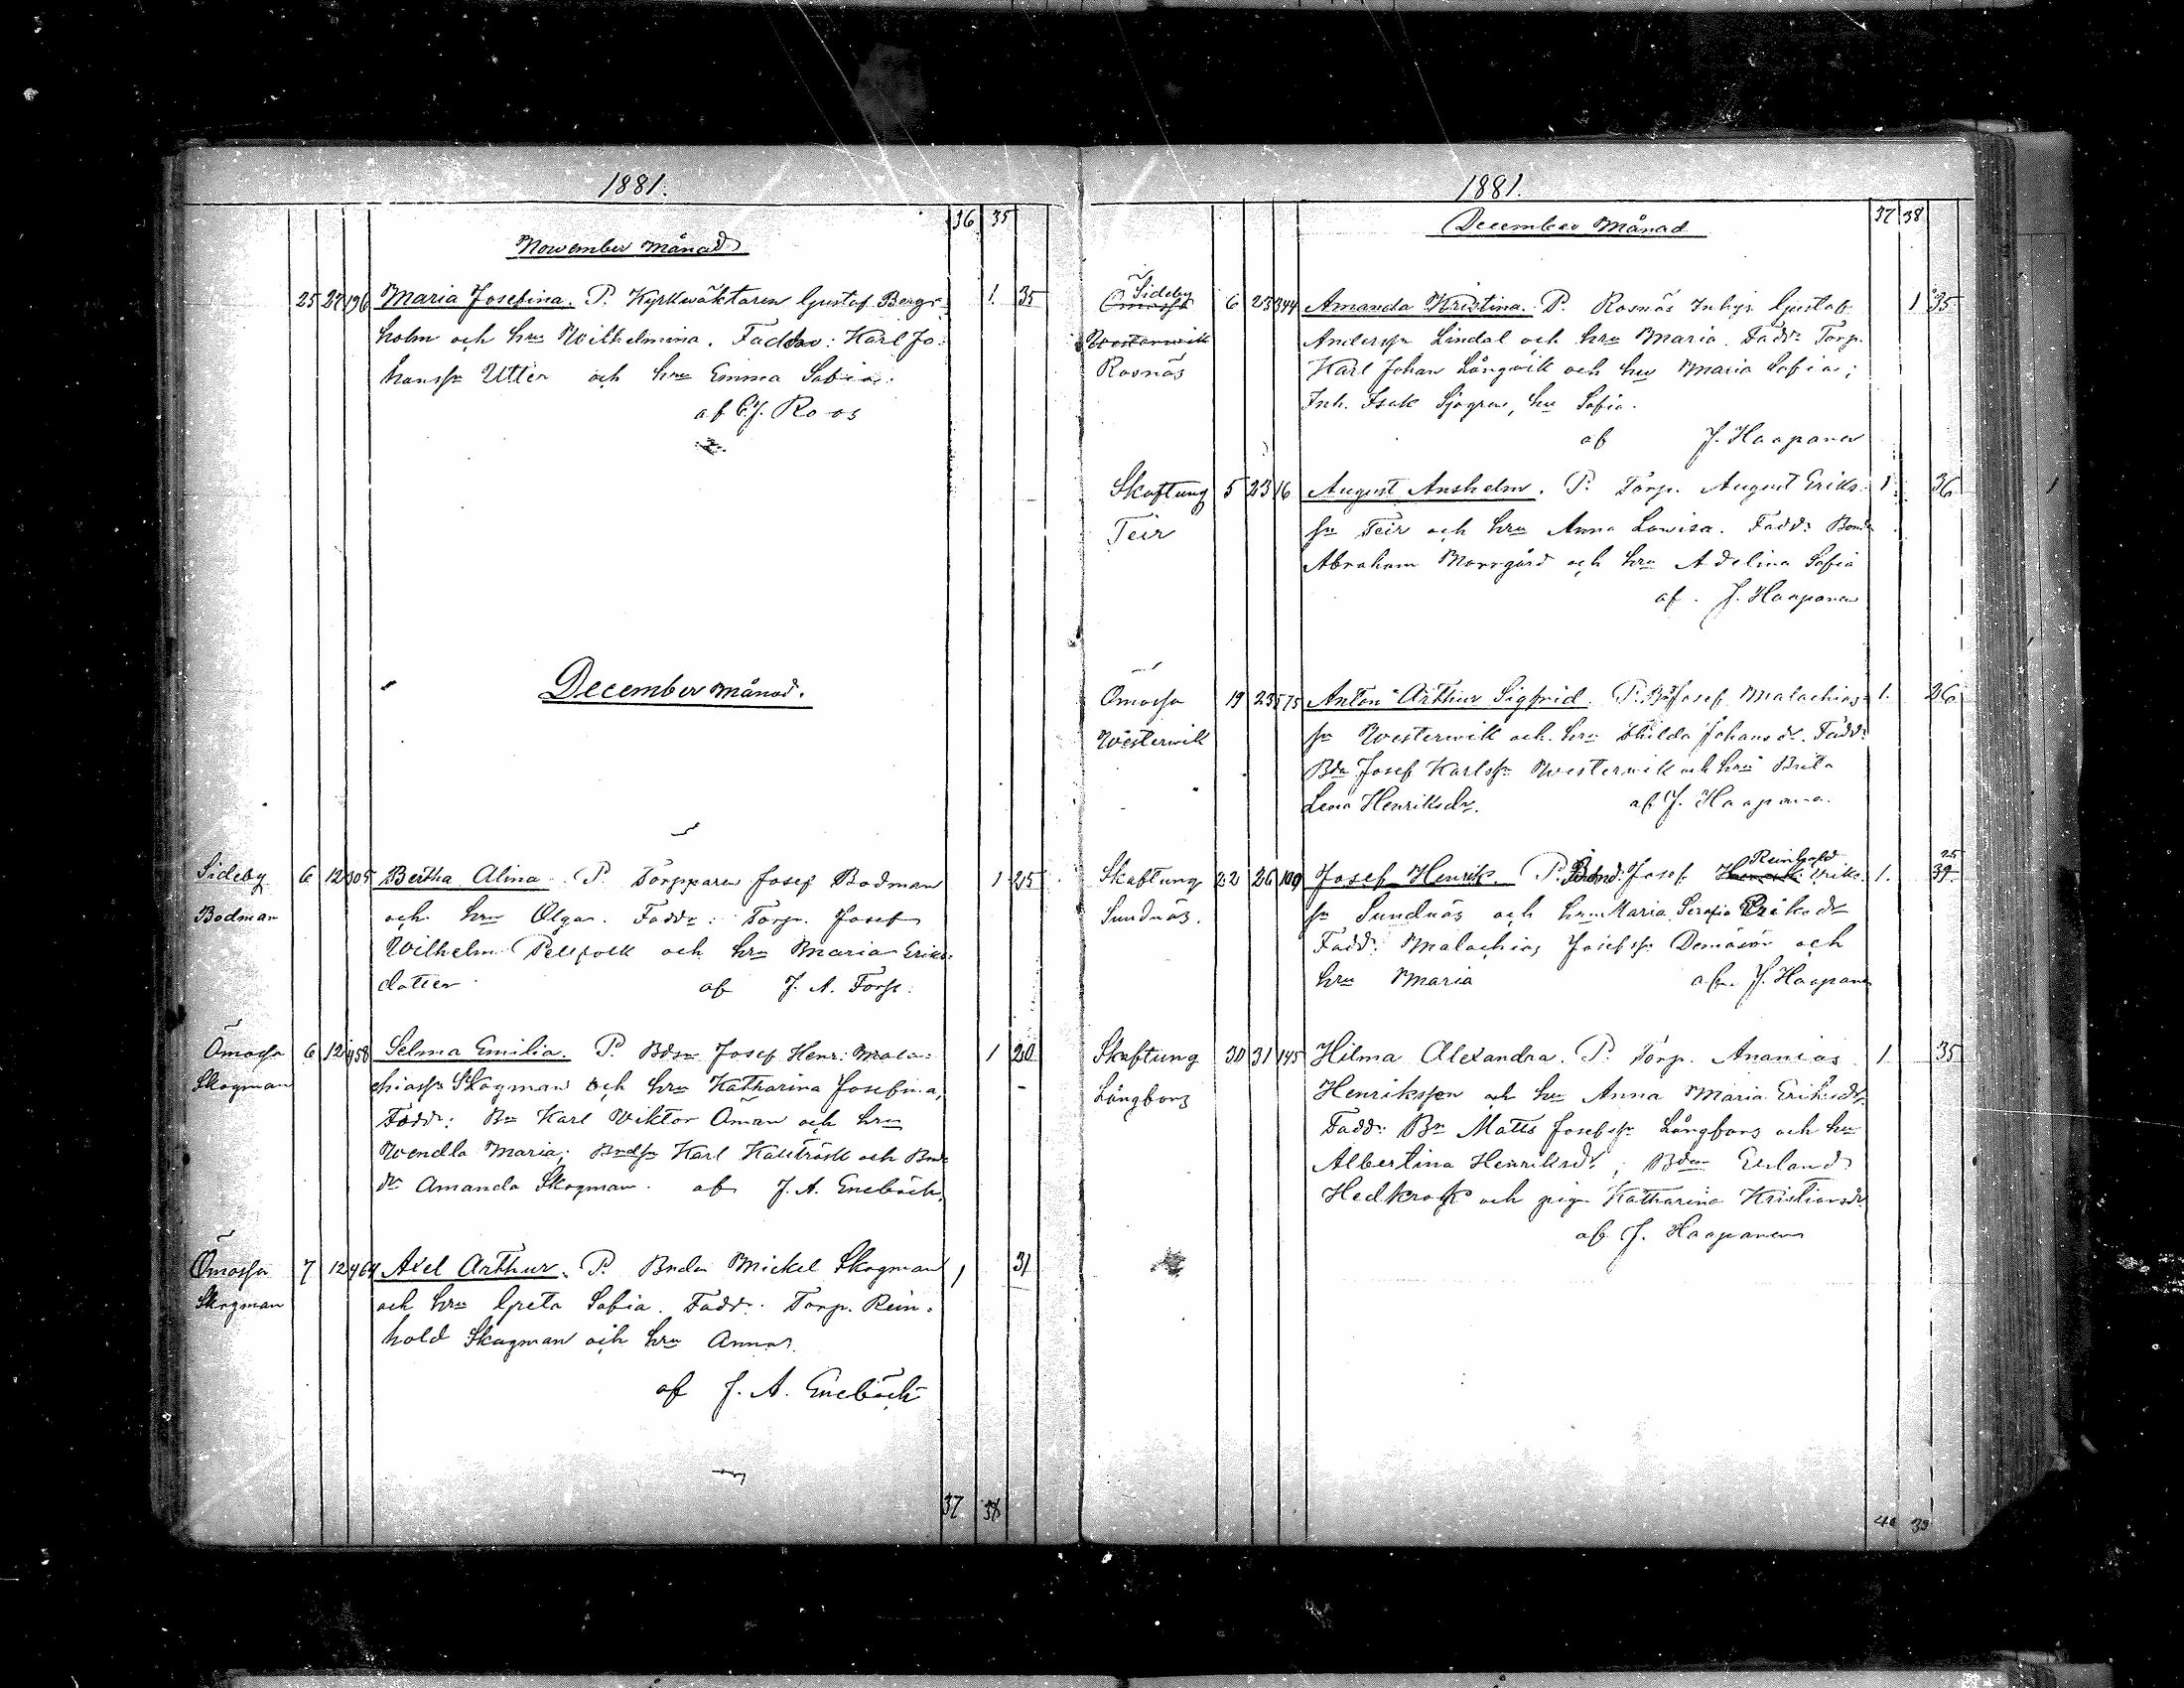 1881.
36 35
November Månad
25 27 196 Maria Josefina. P. Kyrkwäktaren Gustaf Bergs-
holm och hru Wilhelmina. Faddrar: Karl Jo-
hanssn Utter och hru Emma Sofia.
af C.J. Roos
December Månad.
Sideby 6 12 305 Bertha Alina. P. Torpparen Josef Bodman 1 25
Bodman och hru Olga. Faddr: Torp. Josef
Wilhelm Pellfolk och hru Maria Eriks-
dotter. af J. A. Forss.
Ömossa 6 12 458 Selma Emilia. P. Bdsn Josef Henr: Mala- 1 20
Skogman chiassn Skogman och hru Katharina Josefina,
Fadd: Bn Karl Viktor Öman och hru
Wendla Maria; Bndsn Karl Källträsk och Bnd
dr Amanda Skogman. af J. A. Enebäck.
Ömossa 7 12 464 Axel Arthur. P. Bnden Mickel Skogman 1 31
Skogman och hru Greta Sofia. Fadd: Torp. Rein-
hold Skogman och hru Anna.
af J. A. Enebäck
37 38
1881.
37 38
December Månad
Sideby
Ömossa 6 23 344 Amanda Kristina. P. Rosnäs Inhys. Gustaf 1 35
Westerwik Anderssn Lindal och hru Maria. Fadd: Torp.
Rosnäs Karl Johan Långwik och hru Maria Sofia;
Inh. Isak Sjögren, hru Sofia.
af J. Haapanen
Skaftung 5 23 16 August Anshelm. P. Torp. August Eriks- 1. 36
Teir sn Teir och hru Anna Lovisa. Fadd: Bond
Abraham Norrgård och hru Adelina Sofia
af. J. Haapanen
Ömossa 19 23 575 Anton Arthur Sigfrid. P. Bd Josef Malachias- 1. 26
Westerwik sn Westerwik och hru Hilda Johansdr. Fadd:
Bdn Josef Karlssn Westerwik och hru Brita
Lena Henriksdr. af J. Haapanen.
Reinhold 25
Skaftung 22 26 109 Josef Henrik. P. Bond. Josef Henrik Eriks- 1. 39
Sundnäs. sn Sundnäs och hru Maria Serafia Eriksdr
Fadd: Malachias Josefssn och
hru Maria af J. Haapanen
Skaftung 30 31 145 Hilma Alexandra. P. Torp. Ananias 1. 35
Långfors Henriksson och hru Anna Maria Eriksdr.
Fadd: Bn Matts Josefssn Långfors och hru
Albertina Henriksdr.; Bdn Erland
Hedkrok och pig. Katharina Kristiansdr
af J. Haapanen
40 39